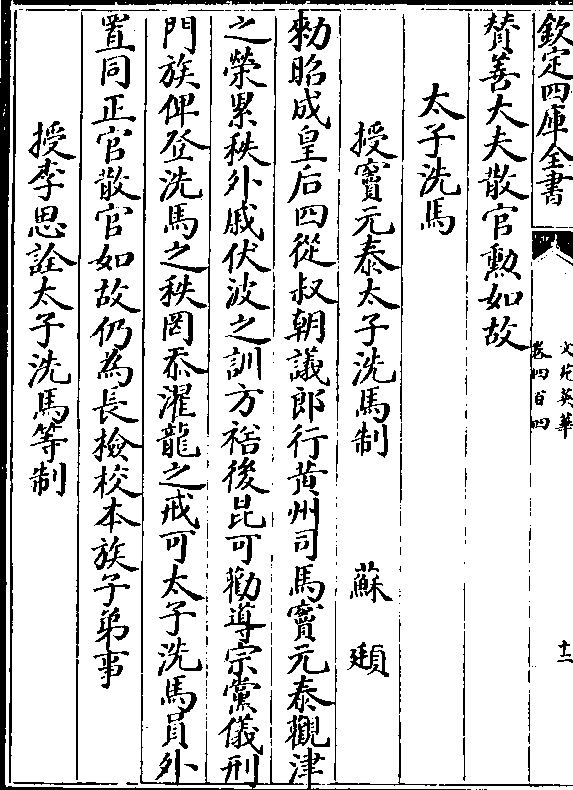 欽定四庫全書
文苑英華
卷四百四
十二
賛善大夫散官勲如故
太子洗馬
授竇元泰太子洗馬制 蘇頲
勑昭成皇后四從叔朝議郎行黄州司馬竇元泰觀津
之榮累秩外戚伏波之訓方裕後昆可勸導宗黨儀刑
門族俾登洗馬之秩罔忝濯龍之戒可太子洗馬員外
置同正官散官如故仍為長檢校本族子弟事
授李思詮太子洗馬等制